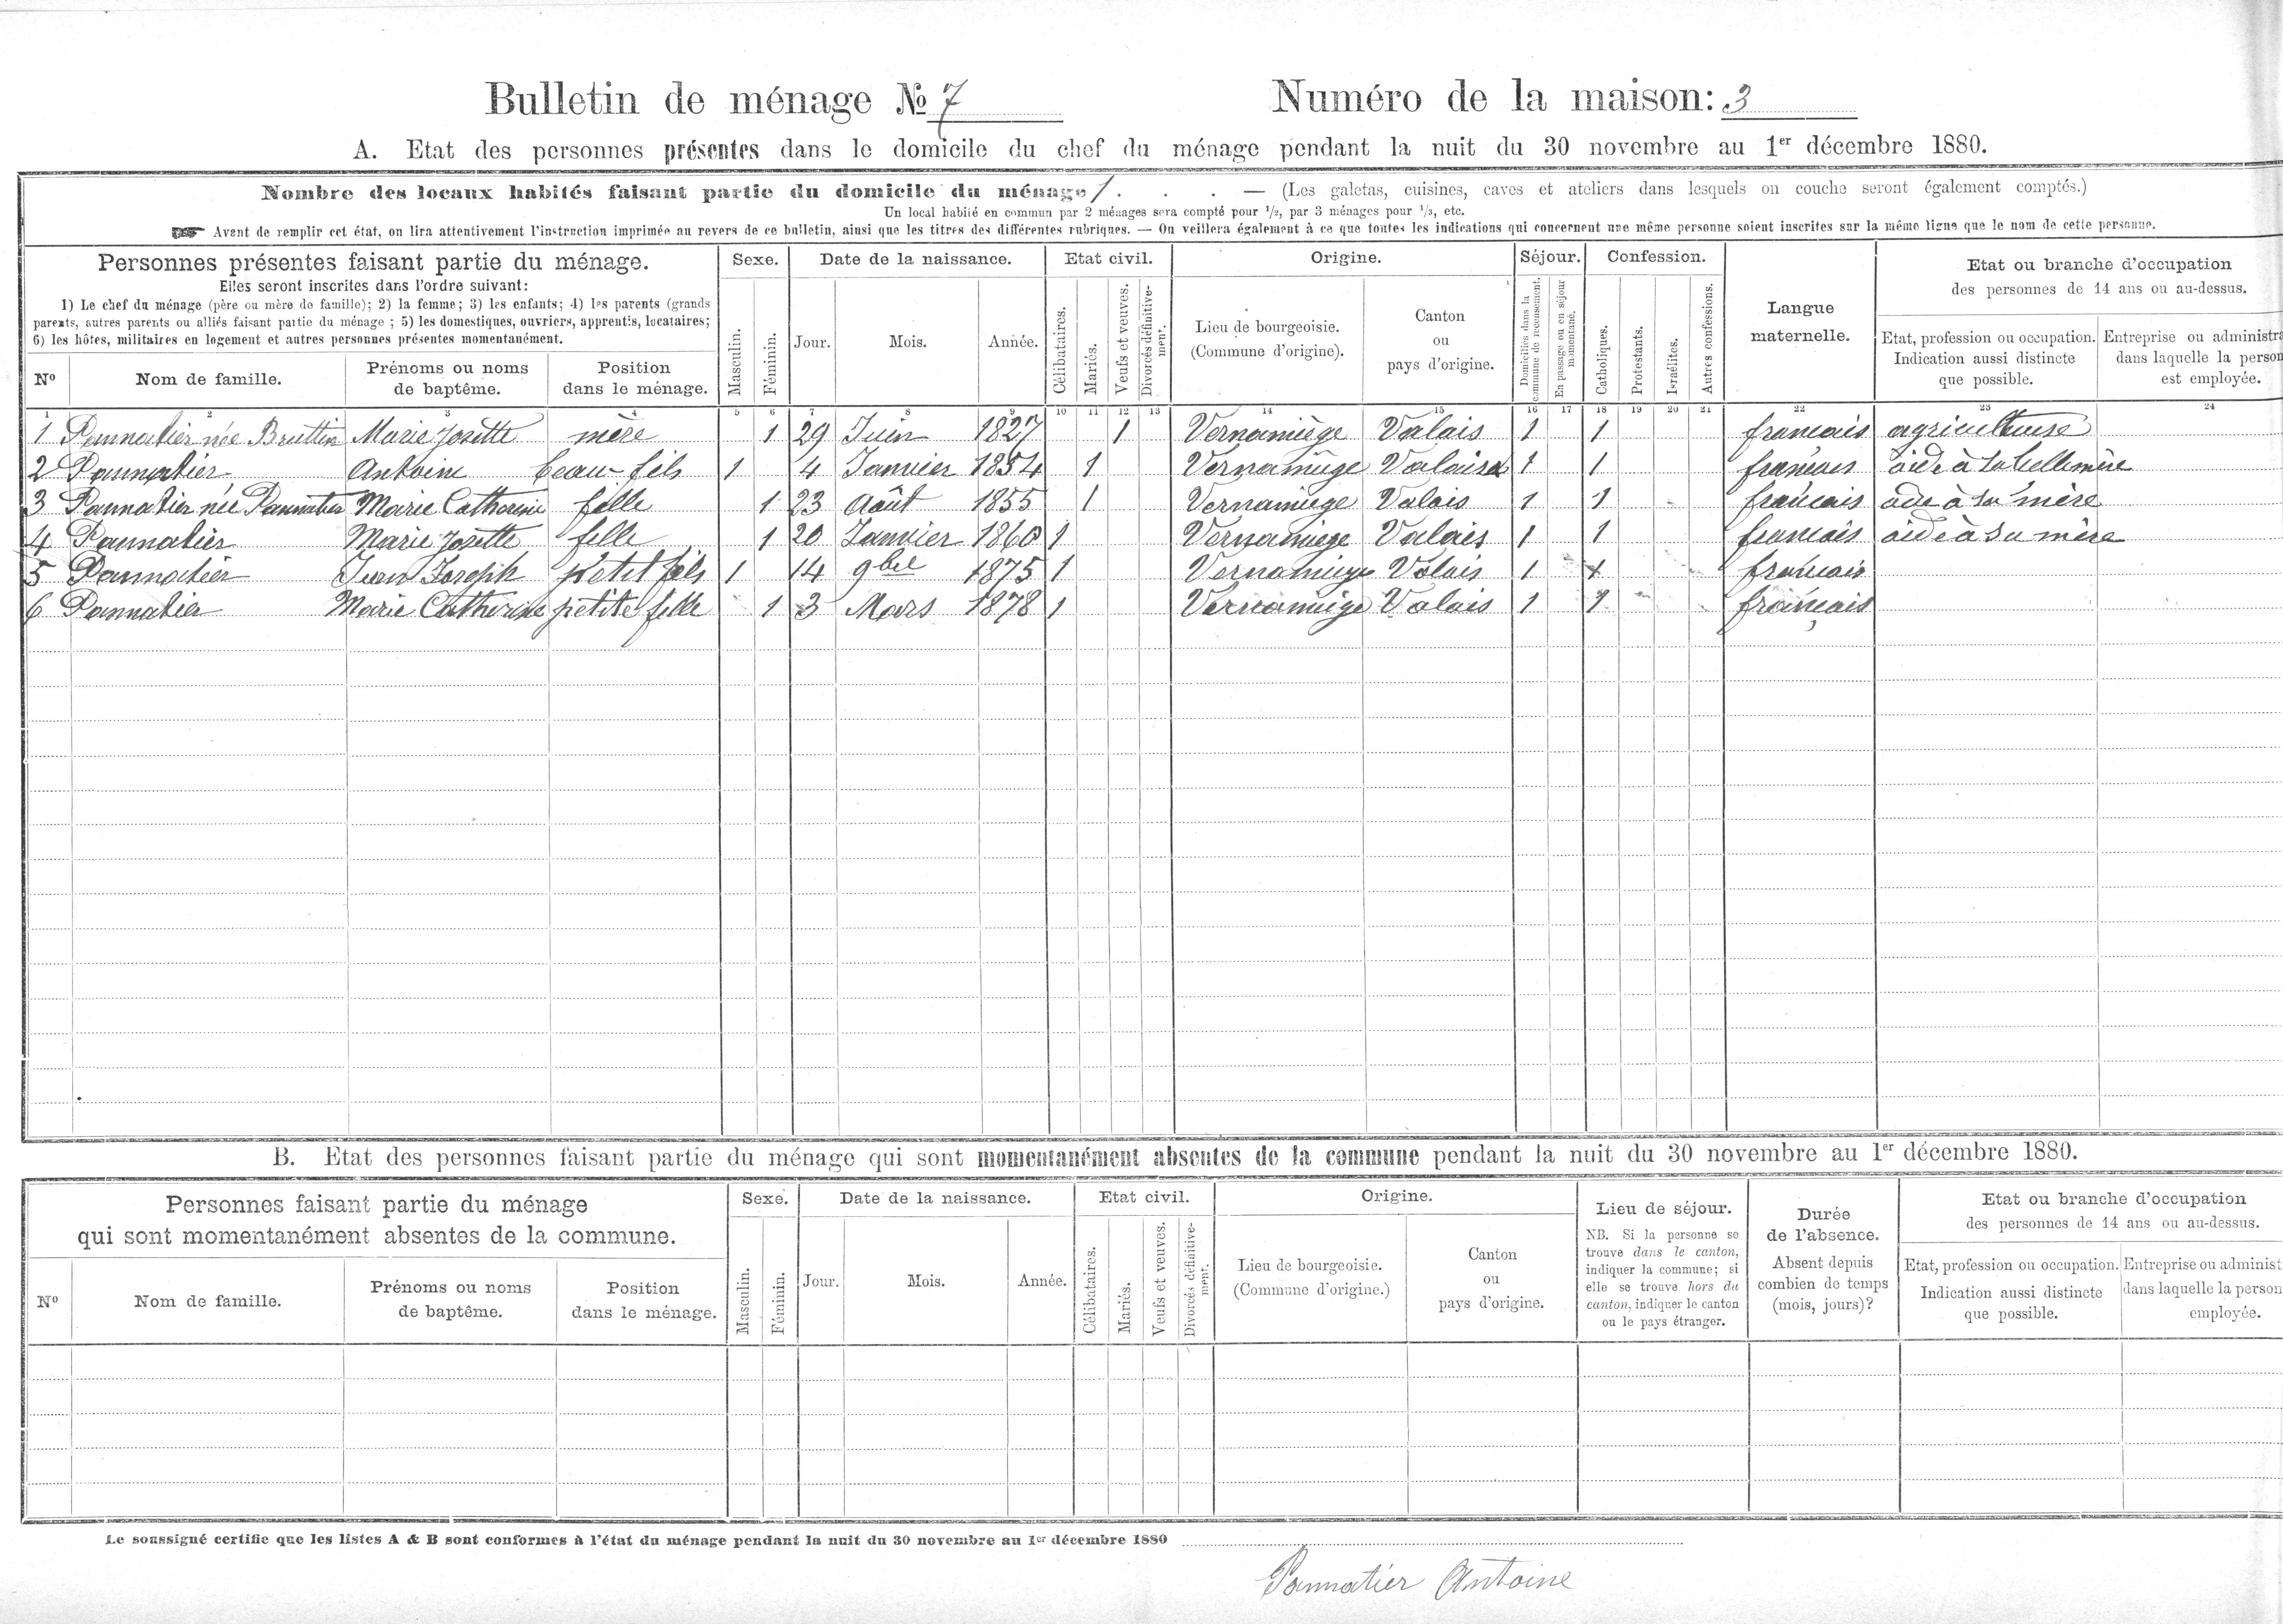 Bulletin de ménage No 7 Numéro de la maison: 3
A. Etat des personnes présentes dans le domicile du chef du ménage pendant la nuit du 30 novembre au 1er décembre 1880.
Nombre des locaux habités faisant partie du domicile du ménage 1 . . . — (Les galetas, cuisines, caves et ateliers dans lesquels on couche seront également comptés.)
Un local habité en commun par 2 ménages sera compté pour 1/2, par 3 ménages pour 1/3, etc.
Avant de remplir cet état, on lira attentivement l'instruction imprimée au revers de ce bulletin, ainsi que les titres des différentes rubriques. — On veillera également à ce que toutes les indications qui concernent une même personne soient inscrites sur la même ligne que le nom de cette personne.
Personnes présentes faisant partie du ménage.
Elles seront inscrites dans l'ordre suivant:
1) Le chef du ménage (père ou mère de famille); 2) la femme; 3) les enfants; 4) les parents (grands
parents, autres parents ou alliés faisant partie du ménage ; 5) les domestiques, ouvriers, apprentis, locataires;
6) les hôtes, militaires en logement et autres personnes présentes momentanément.
No
Nom de famille.
Prénoms ou noms
de baptême.
Position
dans le ménage.
Sexe.
Masculin.
Féminin.
Date de la naissance.
Jour.
Mois.
Année.
Etat civil.
Célibataires.
Mariés.
Veufs et veuves.
Divorcés définitive-
ment.
Origine.
Lieu de bourgeoisie.
(Commune d'origine).
Canton
ou
pays d'origine.
Séjour.
Domiciliés dans la
commune de recensement.
En passage ou en séjour
momentané.
Confession.
Catholiques.
Protestants.
Israélites.
Autres confessions.
Langue
maternelle.
Etat ou branche d'occupation
des personnes de 14 ans ou au-dessus.
Etat, profession ou occupation.
Indication aussi distincte
que possible.
Entreprise ou administra
dans laquelle la person
est employée.
1 2 3 4 5 6 7 8 9 10 11 12 13 14 15 16 17 18 19 20 21 22 23 24
1 Pannatier née Bruttin Marie Josette mère 1 29 Juin 1827 1 Vernamiège Valais 1 1 francais agriculteuse
2 Pannatier Antoine beau-fils 1 4 Janvier 1854 1 Vernamiège Valais 1 1 francais aide à sa bellemère
3 Pannatier née Pannatier Marie Catherine fille 1 23 Août 1855 1 Vernamiège Valais 1 1 francais aide à sa mère
4 Pannatier Marie Josette fille 1 20 Janvier 1860 1 Vernamiège Valais 1 1 francais aide à sa mère
5 Pannatier Jean Joseph petit fils 1 14 9bre 1875 1 Vernamiège Valais 1 1 francais
6 Pannatier Marie Catherine petite fille 1 3 Mars 1878 1 Vernamiège Valais 1 1 français
B. Etat des personnes faisant partie du ménage qui sont momentanément absentes de la commune pendant la nuit du 30 novembre au 1er décembre 1880.
Personnes faisant partie du ménage
qui sont momentanément absentes de la commune.
No
Nom de famille.
Prénoms ou noms
de baptême.
Position
dans le ménage.
Sexe.
Masculin.
Féminin.
Date de la naissance.
Jour.
Mois.
Année.
Etat civil.
Célibataires.
Mariés.
Veufs et veuves.
Divorcés définitive-
ment.
Origine.
Lieu de bourgeoisie.
(Commune d'origine.)
Canton
ou
pays d'origine.
Lieu de séjour.
NB. Si la personne se
trouve dans le canton,
indiquer la commune; si
elle se trouve hors du
canton, indiquer le canton
ou le pays étranger.
Durée
de l'absence.
Absent depuis
combien de temps
(mois, jours)?
Etat ou branche d'occupation
des personnes de 14 ans ou au-dessus.
Etat, profession ou occupation.
Indication aussi distincte
que possible.
Entreprise ou administ
dans laquelle la person
employée.
Le soussigné certifie que les listes A & B sont conformes à l'état du ménage pendant la nuit du 30 novembre au 1er décembre 1880
Pannatier Antoine